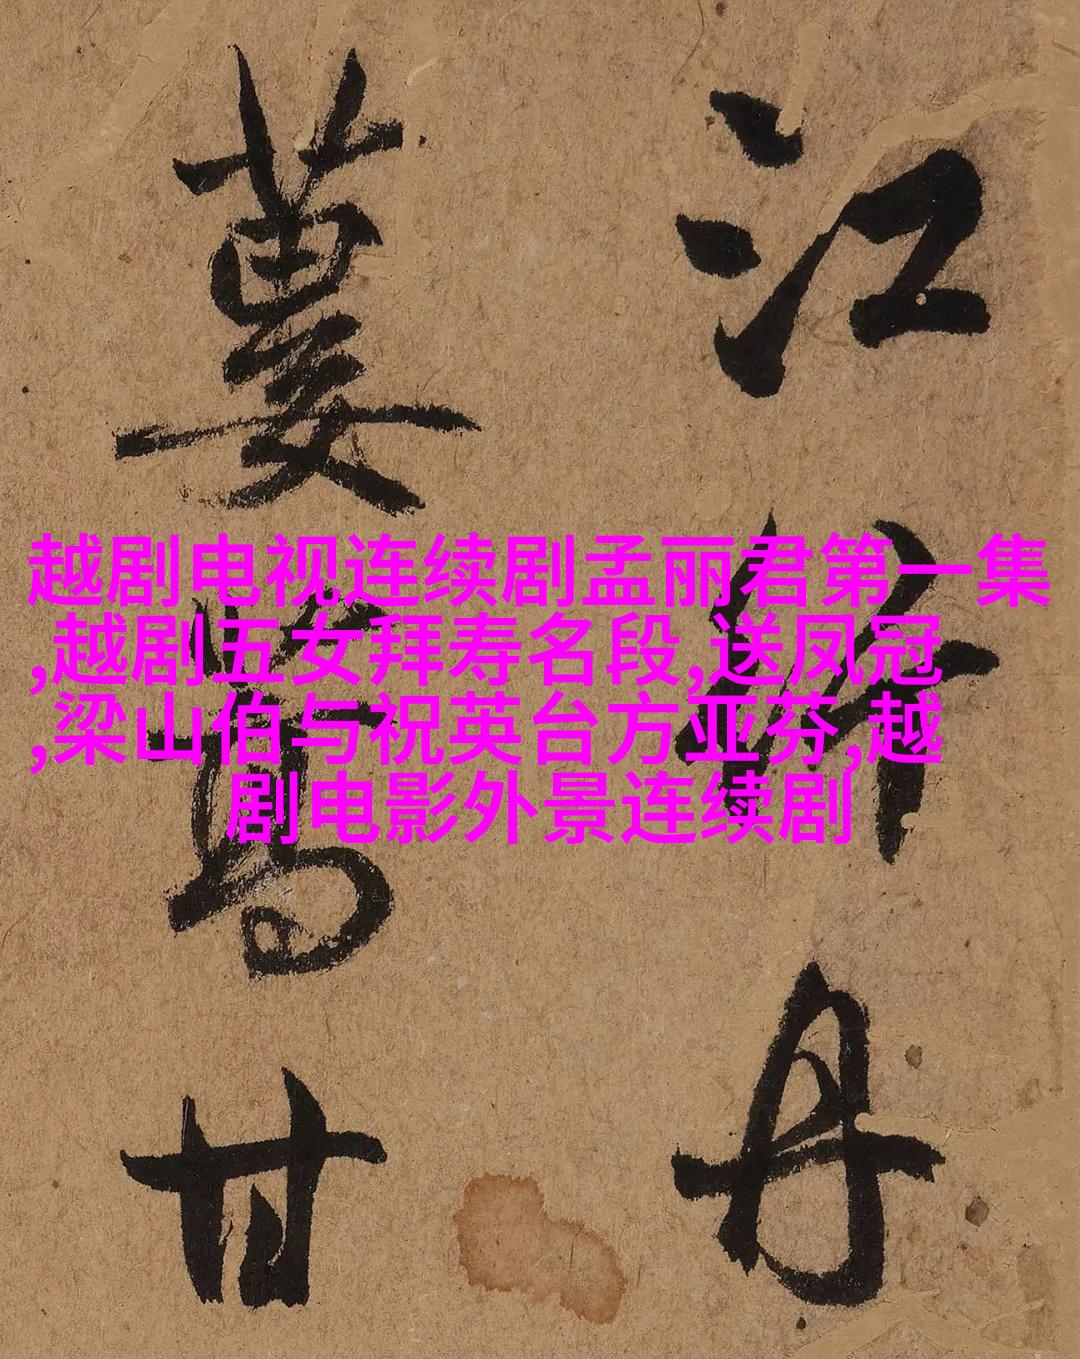 江丹
蔞甘
越剧电视连续剧孟丽君第一集
,越剧五女拜寿名段,送凤冠
,梁山伯与祝英台方亚芬,越
剧电影外景连续剧